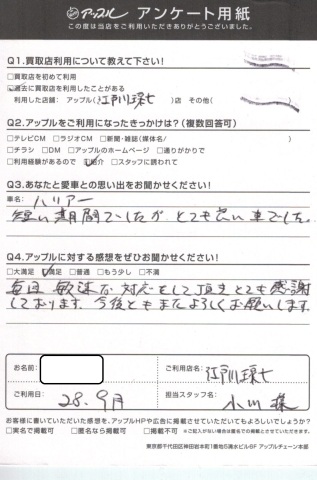 アップル アンケート用紙
この度は当店をご利用いただきありがとうございました。
Q1.買取店利用について教えて下さい!
□買取店を初めて利用
□過去に買取店を利用したことがある
利用した店舗: アップル(江戸川環七)店 その他(
Q2.アップルをご利用になったきっかけは?(複数回答可)
□テレビCM □ラジオCM □新聞・雑誌(媒体名/ )
□チラシ □DM □アップルのホームページ □通りがかりで
□利用経験があるので ☑紹介 □スタッフに誘われて
Q3.あなたと愛車との思い出をお聞かせください!
車名: ハリアー
短い期間でしたがとても良い車でした。
Q4.アップルに対する感想をぜひお聞かせください!
□大満足 ☑満足 □普通 □もう少し □不満
毎回 敏速な対応をして頂きとても感謝
しております。今後ともまたよろしくお願いします。
お名前:
ご利用店名: 江戸川環七
ご利用日: 28.9月
担当スタッフ名: 小川 様
お客様に書いていただいた感想を、アップルHPや広告に掲載させていただいてもよろしいでしょうか?
□実名で掲載可 □匿名なら掲載可 □掲載不可 ※ご記入がない場合は匿名での掲載とさせていただきます。
東京都千代田区神田岩本町1番地6清水ビル8F アップルチェーン本部